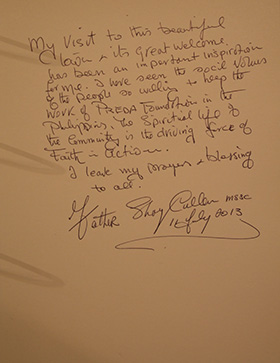 My visit to this beautiful
town & its great welcome
has been an important inspiration
for me. I have seen the social values
of the people so willing to help the
work of PREDA Foundation in the
Philippines. The Spiritual life of
the Community is the driving force of
Faith in action.
I leave my prayers & blessing
to all.
Father Shay Cullen MSSC
July 2013